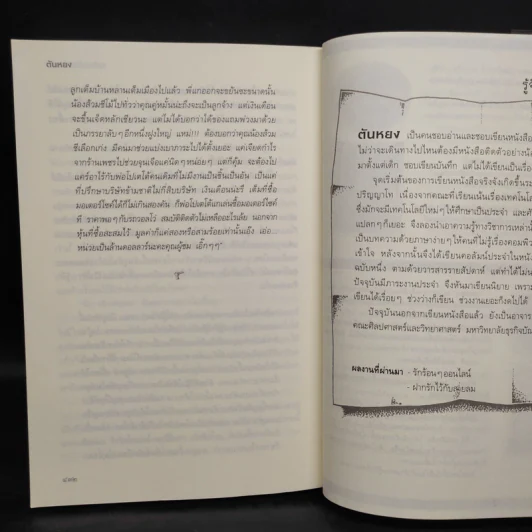 ตันหยง
ลูกเต็มบ้านหลานเต็มเมืองไปแล้ว พี่แกออกจะขยันซะขนาดนั้น
น้องส้วมซีโม้ไปทั่วว่าคุณคู่หมั้นน่ะถึงจะเป็นลูกจ้าง แต่เงินเดือน
จะขึ้นเจ็ดหลักเชียวนะ แต่ไม่ได้บอกว่าได้ของแถมพ่วงมาด้วย
เป็นภรรยาลับๆ อีกหนึ่งฝูงใหญ่ แหม!!! ต้องบอกว่าคุณน้องส้วม
ซีเลือกเก่ง มีคนมาช่วยแบ่งเบาภาระไปได้ตั้งเยอะ แค่เจียดกำไร
จากร้านเพชรไปช่วยจุนเจือแค่นิดๆ หน่อยๆ แต่ก็คุ้ม จะต้องไป
แคร์อะไรกับพ่อไปเดโต้คนเดิมที่ไม่มีงานเป็นชิ้นเป็นอัน เป็นแค่
ที่ปรึกษาบริษัทข้ามชาติไม่กี่สิบบริษัท เงินเดือนน่ะรึ เต็มที่ซื้อ
มอเตอร์ไซค์ได้ก็ไม่เกินสองคัน ก็พ่อไปเดโต้แกเล่นซื้อมอเตอร์ไซค์
ที่ ราคาพอๆ กับรถวอลโว่ สมบัติติดตัวไม่เหลืออะไรเล้ย นอกจาก
หุ้นที่ซื้อสะสมไว้ มูลค่าก็แค่สองหรือสามร้อยเท่านั้นเอ๊ง เอ่อ...
หน่วยเป็นล้านดอลลาร์นะคะคุณผู้ชม เอิ๊กๆๆ"
๔๗๒
รู้จั
ตันหยง เป็นคนชอบอ่านและชอบเขียนหนังสือ
ไม่ว่าจะเดินทางไปไหนต้องมีหนังสือติดตัวอย่างน้
มาตั้งแต่เด็ก ชอบเขียนบันทึก แต่ไม่ได้เขียนเป็นเรื่อ
จุดเริ่มต้นของการเขียนหนังสือจริงจังเกิดขึ้นระ
ปริญญาโท เนื่องจากคณะที่เรียนเน้นเรื่องเทคโนโล
ซึ่งมักจะมีเทคโนโลยีใหม่ๆ ให้ศึกษาเป็นประจำ และศั
แปลกๆ ก็เยอะ จึงลองนำเอาความรู้ทางวิชาการเหล่านั้
เป็นบทความด้วยภาษาง่ายๆ ให้คนที่ไม่รู้เรื่องคอมพิว
เข้าใจ หลังจากนั้นจึงได้เขียนคอลัมน์ประจำในหนัง
ฉบับหนึ่ง ตามด้วยวารสารรายสัปดาห์ แต่ทำได้ไม่น
ปัจจุบันมีภาระงานประจำ จึงหันมาเขียนนิยาย เพรา
เขียนได้เรื่อยๆ ช่วงว่างก็เขียน ช่วงงานเยอะก็งดไปได้
ปัจจุบันนอกจากเขียนหนังสือแล้ว ยังเป็นอาจาร
คณะศิลปศาสตร์และวิทยาศาสตร์ มหาวิทยาลัยธุรกิจบัณ
ผลงานที่ผ่านมา - รักร้อนๆ ออนไลน์
- ฝากรักไว้กับสายลม